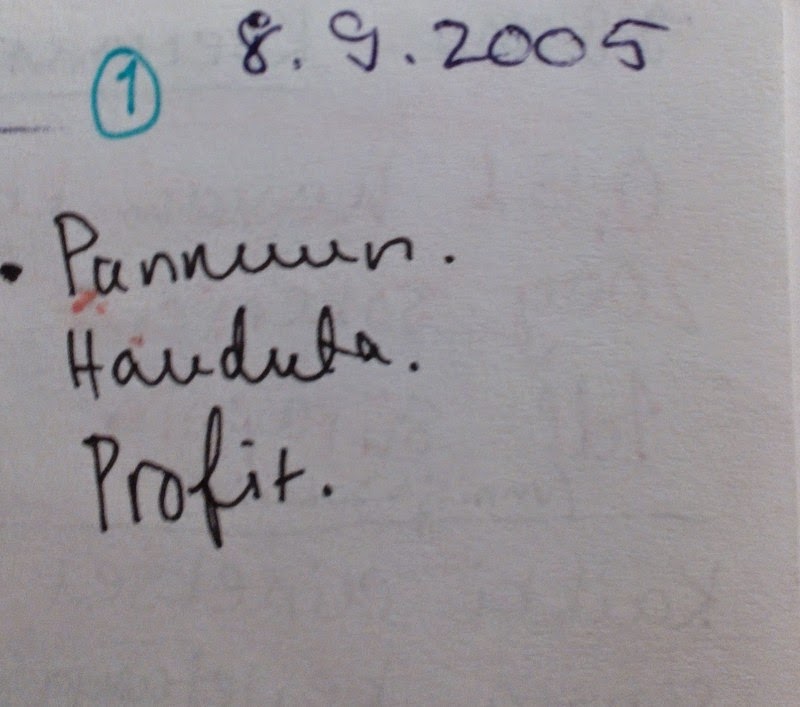 8.9.2005
1
• Pannuun.
Hauduta.
Profit.